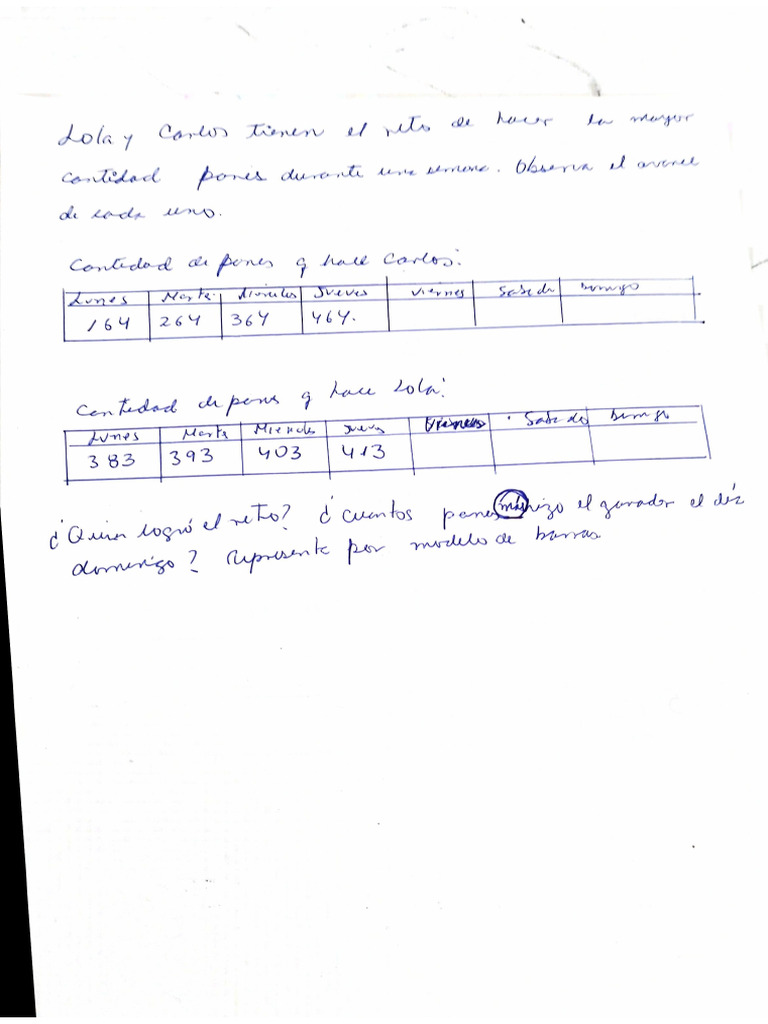 Lola y Carlos tienen el reto de hacer la mayor
cantidad panes durante una semana. Observa el avance
de cada uno.
Cantidad de panes q hace Carlos:
Lunes Marte. Miercoles Jueves Viernes Sabado Domingo
164 264 364 464.
Cantidad de panes q hace Lola:
Lunes Marte Miercoles Jueves Viernes Sabado Domingo
383 393 403 413
¿Quien logró el reto? ¿Cuantos panes más hizo el ganador el día
domingo? Represente por modelo de barras